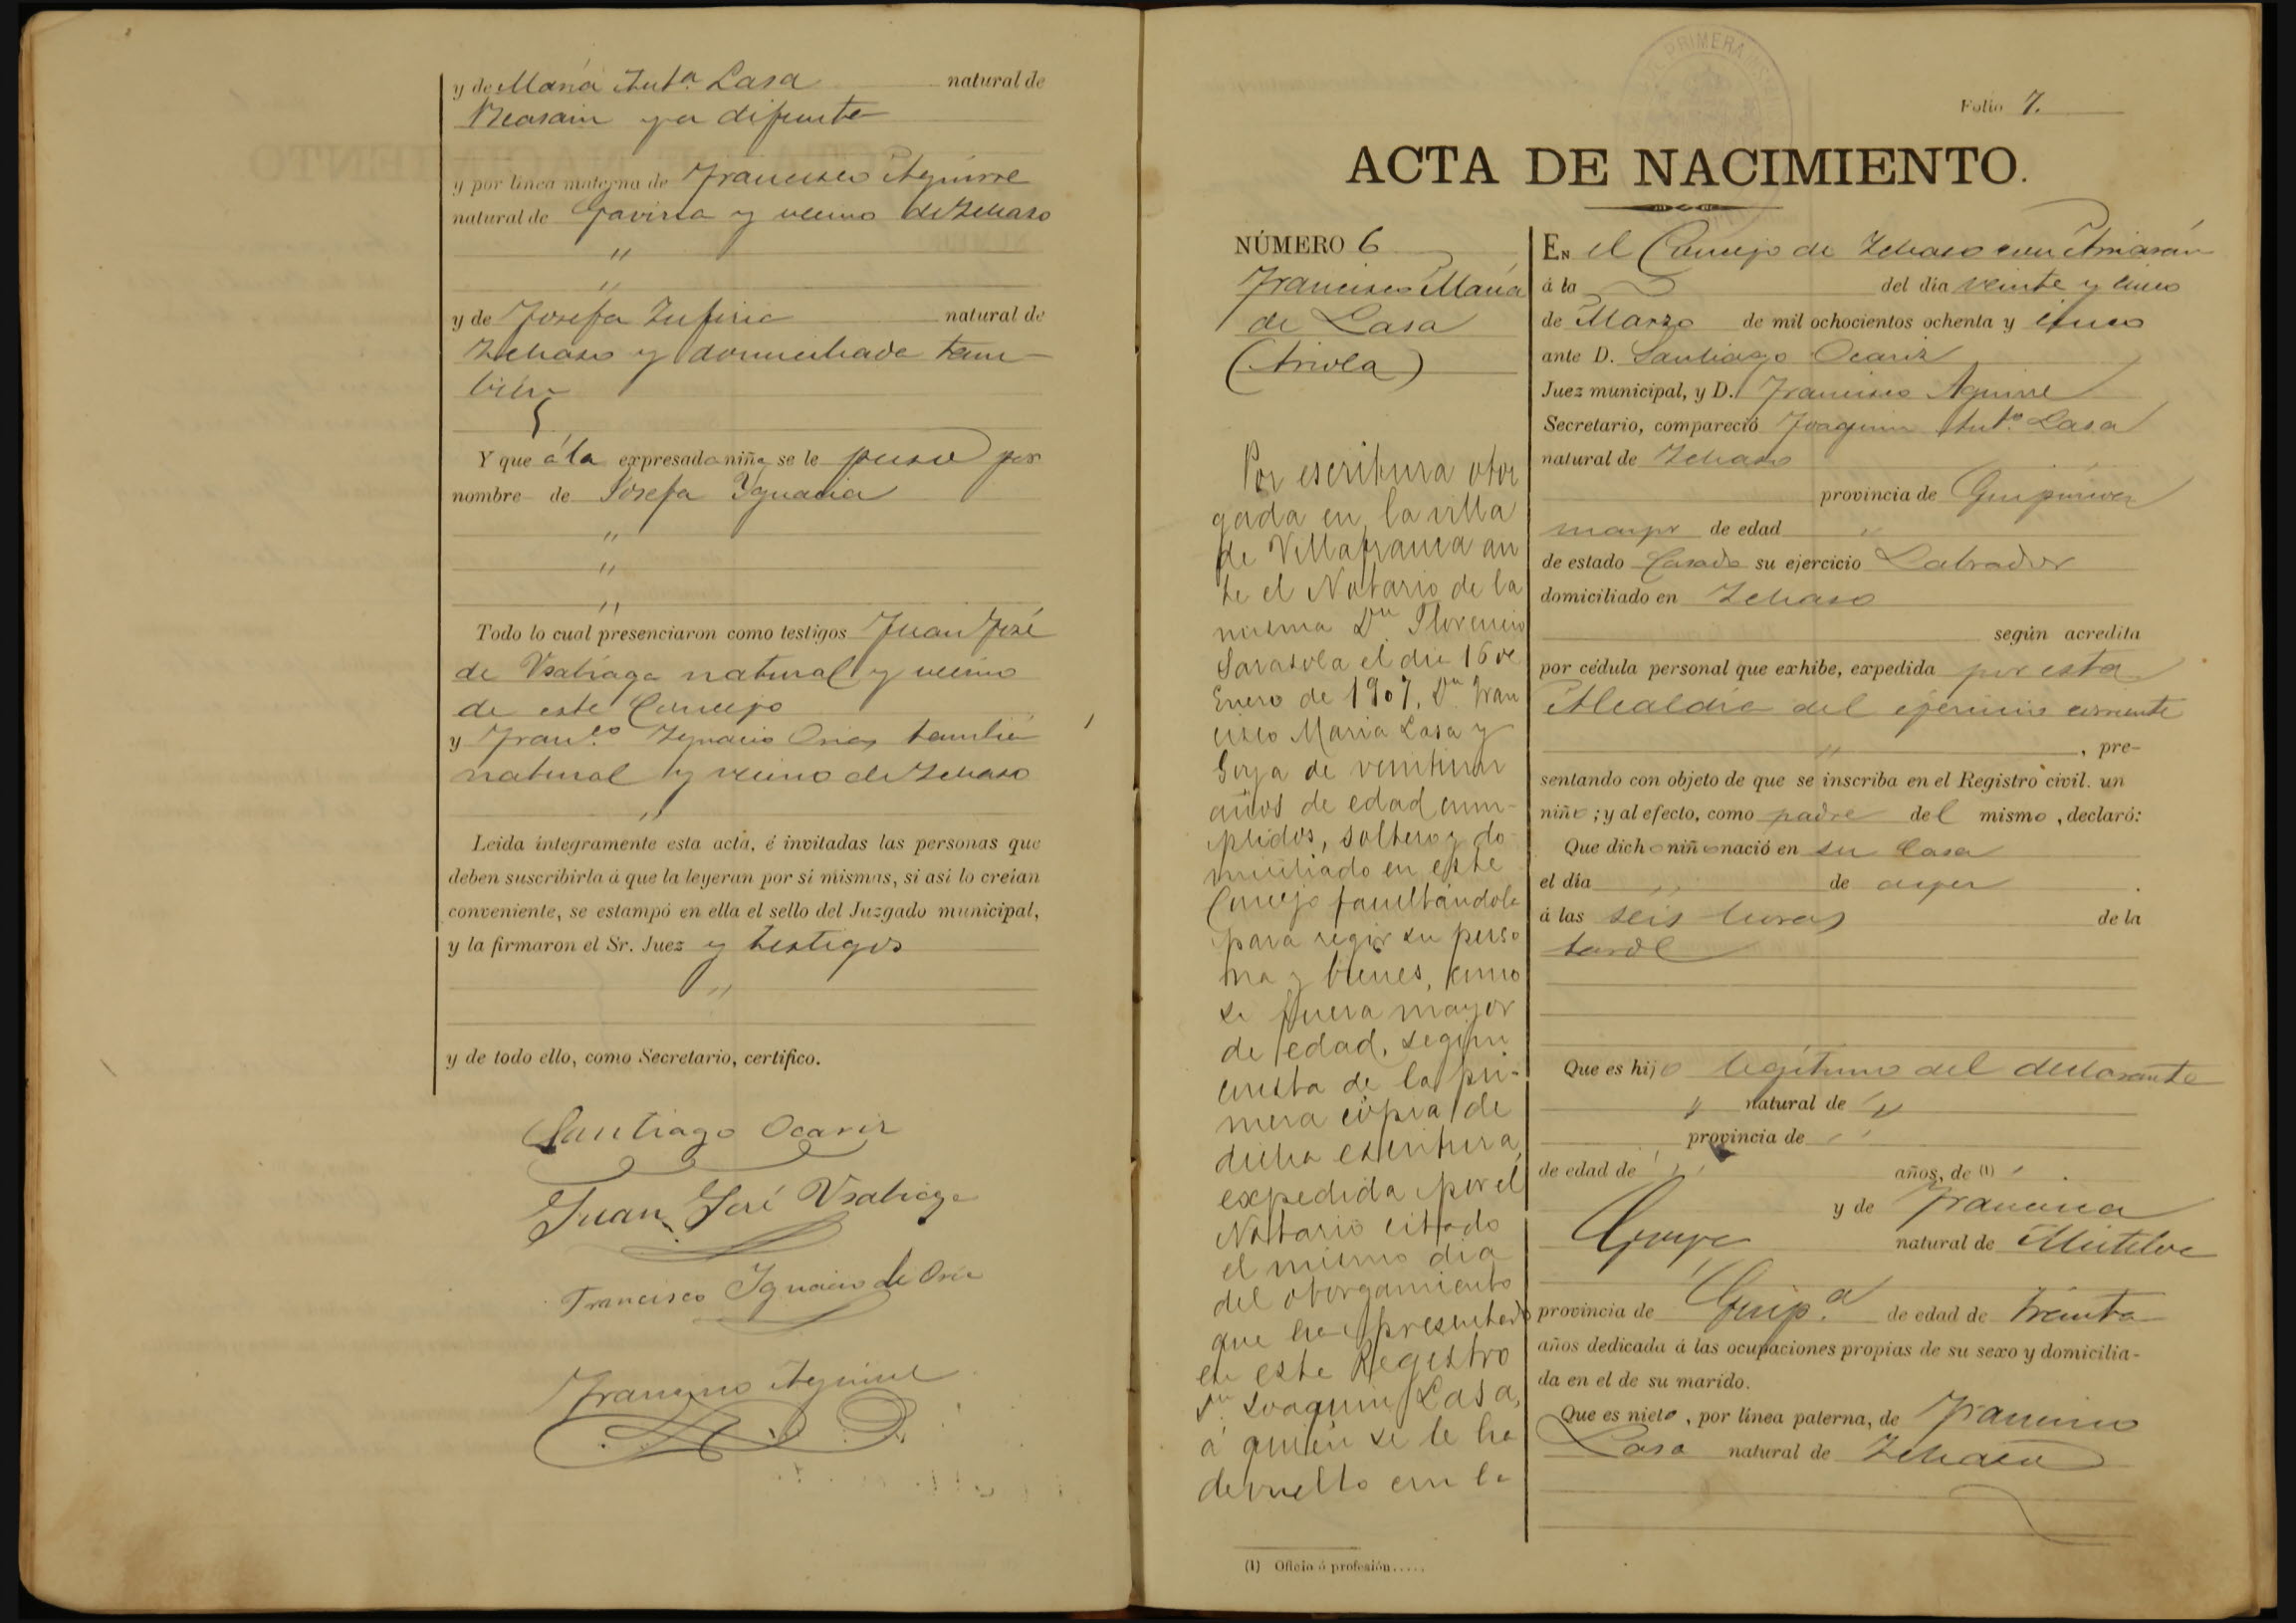 y de María Ant.ª Lasa natural de
Beasain ya difunta
y por línea materna de Francisco Aguirre
natural de Gaviria y vecino de Ichaso
"
"
y de Josefa natural de
Ichaso y domiciliada tam-
bién
Y que á la expresada niña se le puso por
nombre de Josefa Ygnacia
"
"
"
Todo lo cual presenciaron como testigos Juan José
de Usabiaga natural y vecino
de este Concejo
y Fran.co Ignacio Oria también
natural y vecino de Ichaso
"
Leida íntegramente esta acta, é invitadas las personas que
deben suscribirla á que la leyeran por sí mismas, si así lo creían
conveniente, se estampó en ella el sello del Juzgado municipal,
y la firmaron el Sr. Juez y testigos
"
y de todo ello, como Secretario, certifico.
Santiago Ocariz
Juan José Usabiaga
Francisco Ignacio de Oria
Francisco Aguirre
PRIMERA
Folio 7.
ACTA DE NACIMIENTO.
NÚMERO 6
Francisco María
de Lasa
(Ariola)
Por escritura otor
gada en la villa
de Villafranca an
te el Notario de la
misma Dn Florencio
Sarasola el dia 16 de
Enero de 1907, Dn Fran
cisco Maria Lasa y
Goya de veintiun
años de edad cum-
plidos, soltero y do
miciliado en este
Concejo facultándole
para regir su perso
na y bienes, como
si fuera mayor
de edad, según
consta de la pri-
mera cópia de
dicha escritura,
expedida por el
Notario citado
el mismo dia
del otorgamiento
que ha presentado
en este Registro
Dn Joaquin Lasa,
á quien se le ha
devuelto con la
(1) Oficio ó profesión.....
EN el Concejo de Ichaso con Arriarán
á la del día veinte y cinco
de Marzo de mil ochocientos ochenta y cinco
ante D. Santiago Ocariz
Juez municipal, y D. Francisco Aguirre
Secretario, compareció Joaquin Ant.º Lasa
natural de Ichaso
provincia de Guipúzcoa
mayor de edad "
de estado Casado su ejercicio Labrador
domiciliado en Ichaso
según acredita
por cédula personal que exhibe, expedida por esta
Alcaldía del ejercicio corriente
" , pre-
sentando con objeto de que se inscriba en el Registro civil. un
niño; y al efecto, como padre del mismo, declaró:
Que dicho niño nació en su Casa
el día " de ayer
á las seis horas de la
tarde
Que es hijo legítimo del declarante
" natural de "
provincia de "
de edad de " años, de (1) "
y de Francisca
Goya natural de Mutiloa
provincia de Guip.ª de edad de treinta
años dedicada á las ocupaciones propias de su sexo y domicilia-
da en el de su marido.
Que es nieto, por línea paterna, de Francisco
Lasa natural de Ichaso